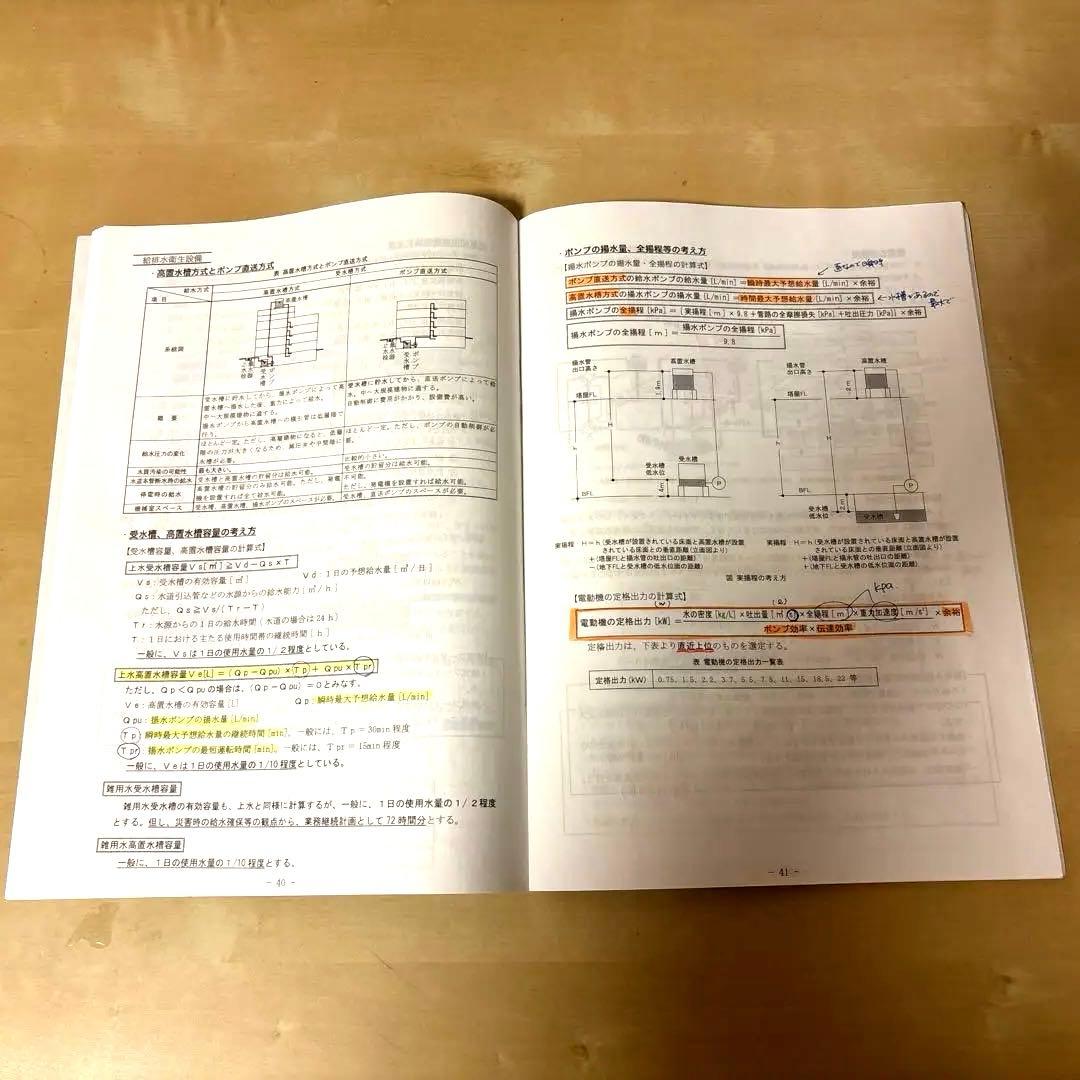 給排水衛生設備
・高置水槽方式とポンプ直送方式
表 高置水槽方式とポンプ直送方式
給水方式
項目
高置水槽方式
受水槽方式
ポンプ直送方式
系統図
高置水槽
受水槽
ポンプ
受水槽
ポンプ
概要
受水槽に貯水してから、揚水ポンプによって高
置水槽へ揚水した後、重力によって給水。
中～大規模建物に適する。
揚水ポンプから高置水槽への横引管は低層階で
行う。
受水槽に貯水してから、直送ポンプによって給
水。中～大規模建物に適する。
自動制御に費用がかかり、設備費が高い。
給水圧力の変化
ほとんど一定。ただし、高層建物になると、低層
階の圧力が大きくなるため、減圧弁や中間階に
水槽が必要。
ほとんど一定。ただし、ポンプの自動制御が必
要。
水質汚染の可能性
最も大きい。
比較的小さい。
水道本管断水時の給水
受水槽と高置水槽の貯留分は給水可能。
受水槽の貯留分は給水可能。
停電時の給水
高置水槽の貯留分のみ給水可能。ただし、発電
機を設置すれば全て給水可能。
不可能。
ただし、発電機を設置すれば給水可能。
機械室スペース
受水槽、高置水槽、揚水ポンプのスペースが必要。
受水槽、直送ポンプのスペースが必要。
・受水槽、高置水槽容量の考え方
【受水槽容量、高置水槽容量の計算式】
上水受水槽容量Vs[㎥]≧Vd－Qs×T
Vs：受水槽の有効容量[㎥]
Vd：1日の予想給水量[㎥/日]
Qs：水道引込管などの水源からの給水能力[㎥/h]
ただし、Qs≧Vs/(Tr－T)
Tr：水源からの1日の給水時間(水道の場合は24h)
T：1日における主たる使用時間帯の継続時間[h]
一般に、Vsは1日の使用水量の1/2程度としている。
上水高置水槽容量Ve[L]＝(Qp－Qpu)×Tp＋Qpu×Tpr
ただし、Qp＜Qpuの場合は、(Qp－Qpu)＝0とみなす。
Ve：高置水槽の有効容量[L]
Qp：瞬時最大予想給水量[L/min]
Qpu：揚水ポンプの揚水量[L/min]
Tp：瞬時最大予想給水量の継続時間[min]、一般には、Tp＝30min程度
Tpr：揚水ポンプの最短運転時間[min]。一般には、Tpr＝15min程度
一般に、Veは1日の使用水量の1/10程度としている。
雑用水受水槽容量
雑用水受水槽の有効容量も、上水と同様に計算するが、一般に、1日の使用水量の1/2程度
とする。但し、災害時の給水確保等の観点から、業務継続計画として72時間分とする。
雑用水高置水槽容量
一般に、1日の使用水量の1/10程度とする。
- 40 -
・ポンプの揚水量、全揚程等の考え方
【揚水ポンプの揚水量・全揚程の計算式】
ポンプ直送方式の給水ポンプの給水量[L/min]＝瞬時最大予想給水量[L/min]×余裕
高置水槽方式の揚水ポンプの揚水量[L/min]＝時間最大予想給水量[L/min]×余裕
←水槽があるので
揚水ポンプの全揚程[kPa]＝{実揚程[m]×9.8＋管路の全摩擦損失[kPa]＋吐出圧力[kPa]}×余裕
揚水ポンプの全揚程[m]＝揚水ポンプの全揚程[kPa]
9.8
揚水管
出口高さ
高置水槽
塔屋FL
H
h
受水槽
受水槽
低水位
P
BFL
揚水管
出口高さ
高置水槽
2m
塔屋FL
H
h
P
BFL
2m
受水槽
低水位
受水槽
実揚程：H＝h(受水槽が設置されている床面と高置水槽が設置
されている床面との垂直距離(立面図より)
＋(塔屋FLと揚水管の吐出口の距離)
－(地下FLと受水槽の低水位面の距離)
実揚程：H＝h(受水槽が設置されている床面と高置水槽が設置
されている床面との垂直距離(立面図より)
＋(塔屋FLと揚水管の吐出口の距離)
＋(地下FLと受水槽の低水位面の距離)
図 実揚程の考え方
kpa.
【電動機の定格出力の計算式】
電動機の定格出力[kW]＝水の密度[kg/L]×吐出量[㎥/s]×全揚程[m]×重力加速度[m/s²]×余裕
ポンプ効率×伝達効率
定格出力は、下表より直近上位のものを選定する。
表 電動機の定格出力一覧表
定格出力(kW) 0.75, 1.5, 2.2, 3.7, 5.5, 7.5, 11, 15, 18.5, 22 等
- 41 -